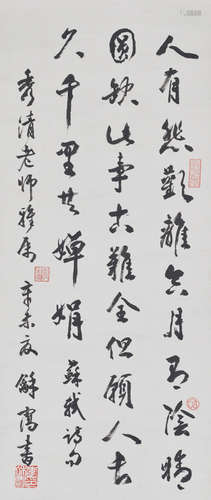 人有悲歡離合月有陰晴
圓缺此事古難全但願人長
久千里共嬋娟 蘇軾詩句
秀清老師雅屬 辛未夏 書